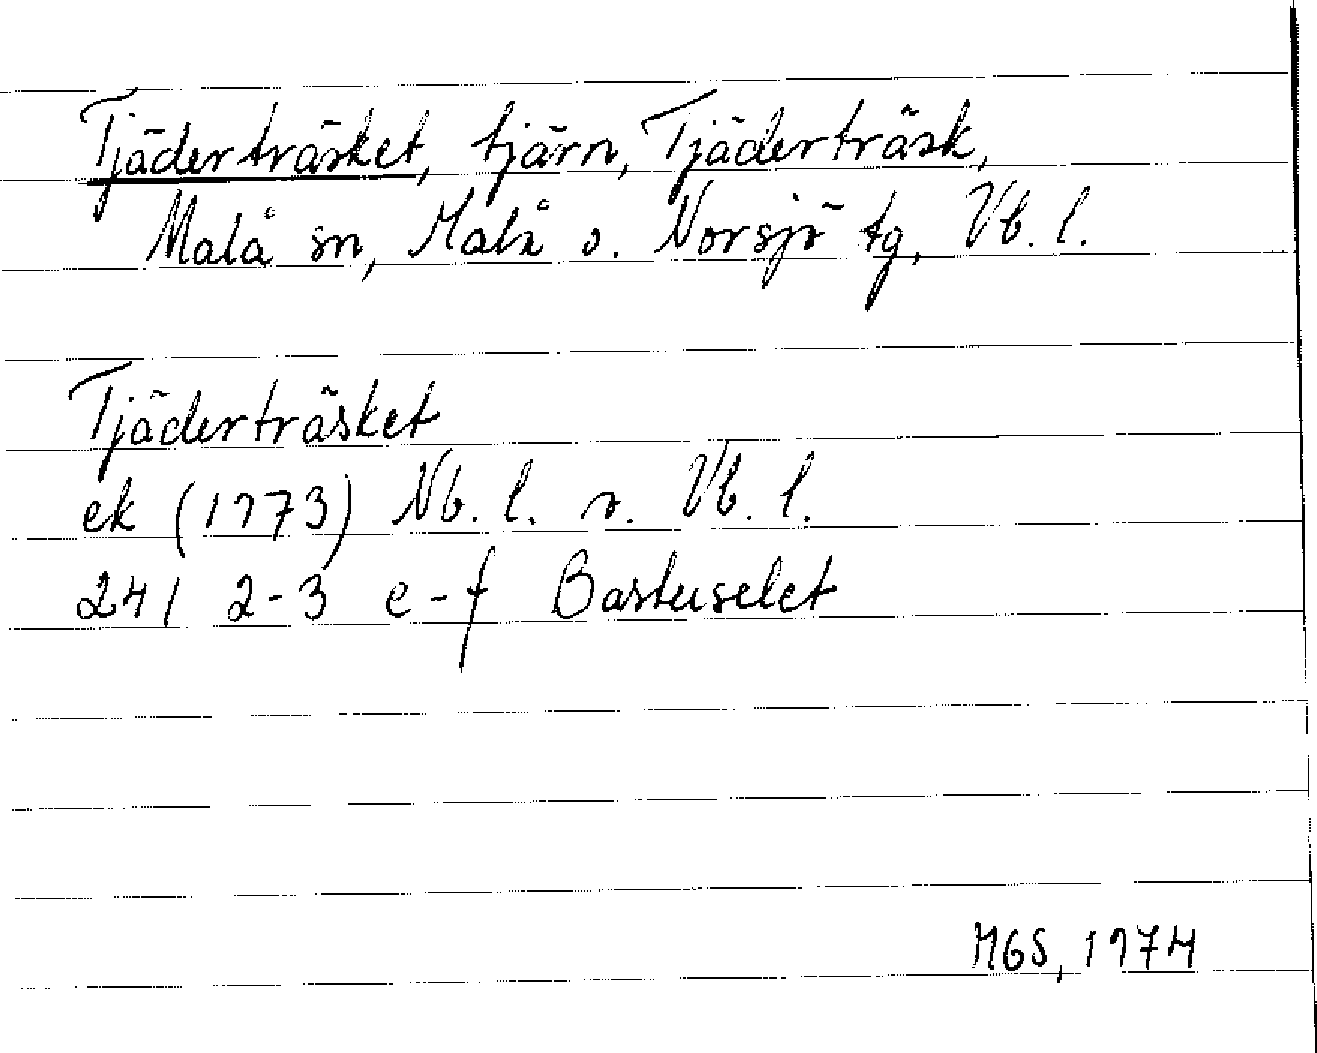 Tjäderträsket, tjärn, Tjäderträsk,
Malå sn, Malå o. Norsjö tg, Vb. l.
Tjäderträsket
ek (1973) Nb. l. o. Vb. l.
241 2-3 e-f Bastuselet
MGS, 1974